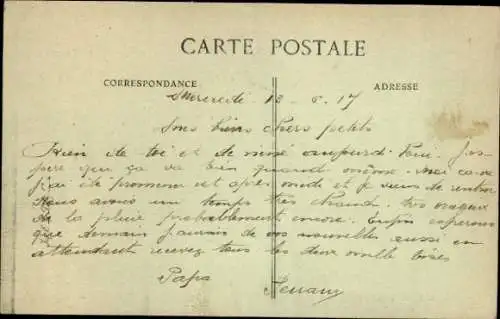 CARTE POSTALE
CORRESPONDANCE
ADRESSE
Mercredi 12 - 17
Mes biens chers petits
Rien de toi et de aujourd'hui. J'es-
père que ça va bien quand même. Moi
j'ai été promener cet après midi et je viens de rentrer
Nous avons un temps très chaud. très orageux
de la pluie probablement encore. Enfin esperons
que demain j'aurais de vos nouvelles aussi en
attendant recevez tous les deux mille bises
Papa